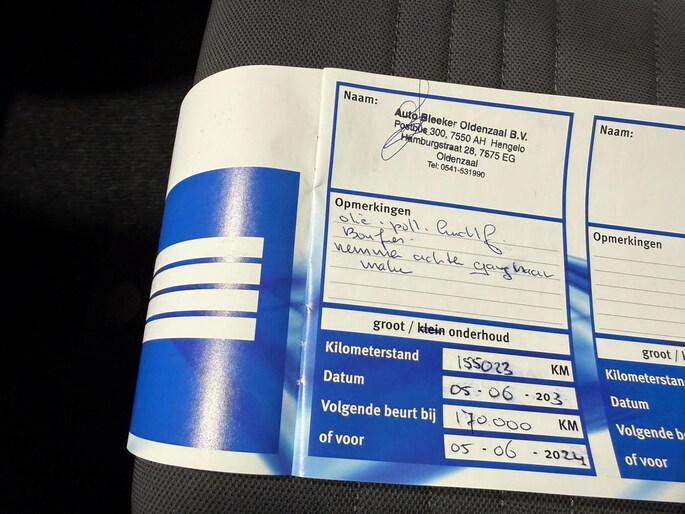 Naam:
Auto Bleeker Oldenzaal B.V.
Postbus 300, 7550 AH Hengelo
Hamburgstraat 28, 7575 EG
Oldenzaal
Tel: 0541-531990
Opmerkingen
olie. poll. luchtf.
remmen achter gangbaar
maken
groot / klein onderhoud
Kilometerstand 155023 KM
Datum 05-06-203
Volgende beurt bij 170.000 KM
of voor 05-06-2024
Naam:
Opmerkingen
groot / k
Kilometerstan
Datum
Volgende beu
of voor